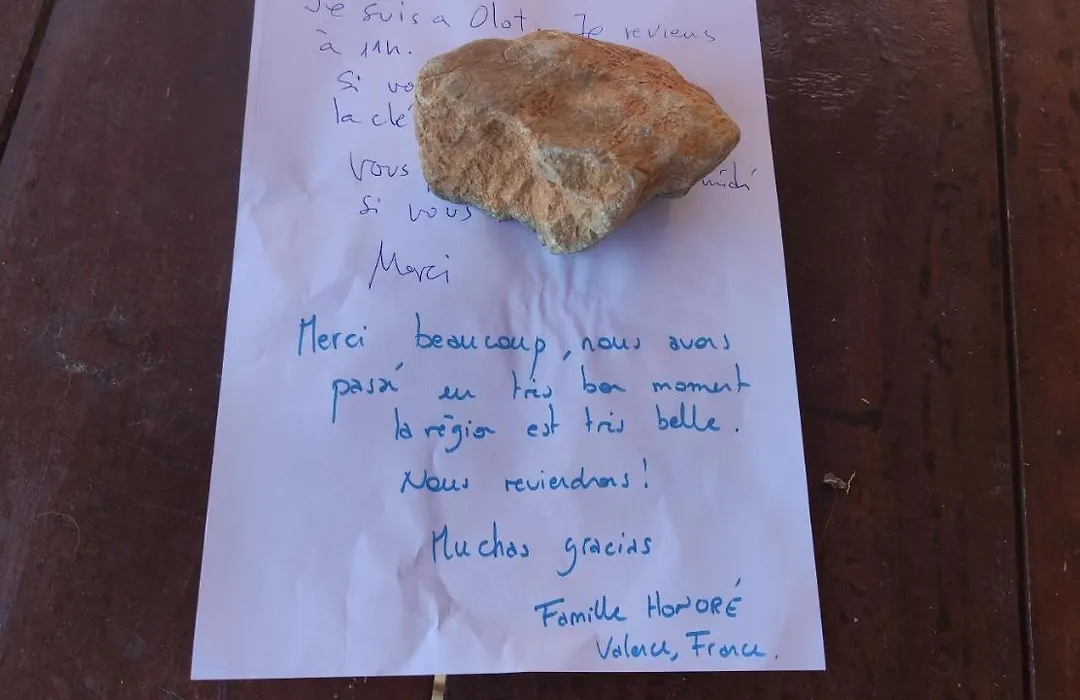 Je suis a Olot. Je reviens
à 11h.
Si vo
la clé
Vous midi
si vous
Merci
Merci beaucoup, nous avons
passé un très bon moment
la région est très belle.
Nous reviendrons!
Muchas gracias
Famille HONORÉ
Valence, France.